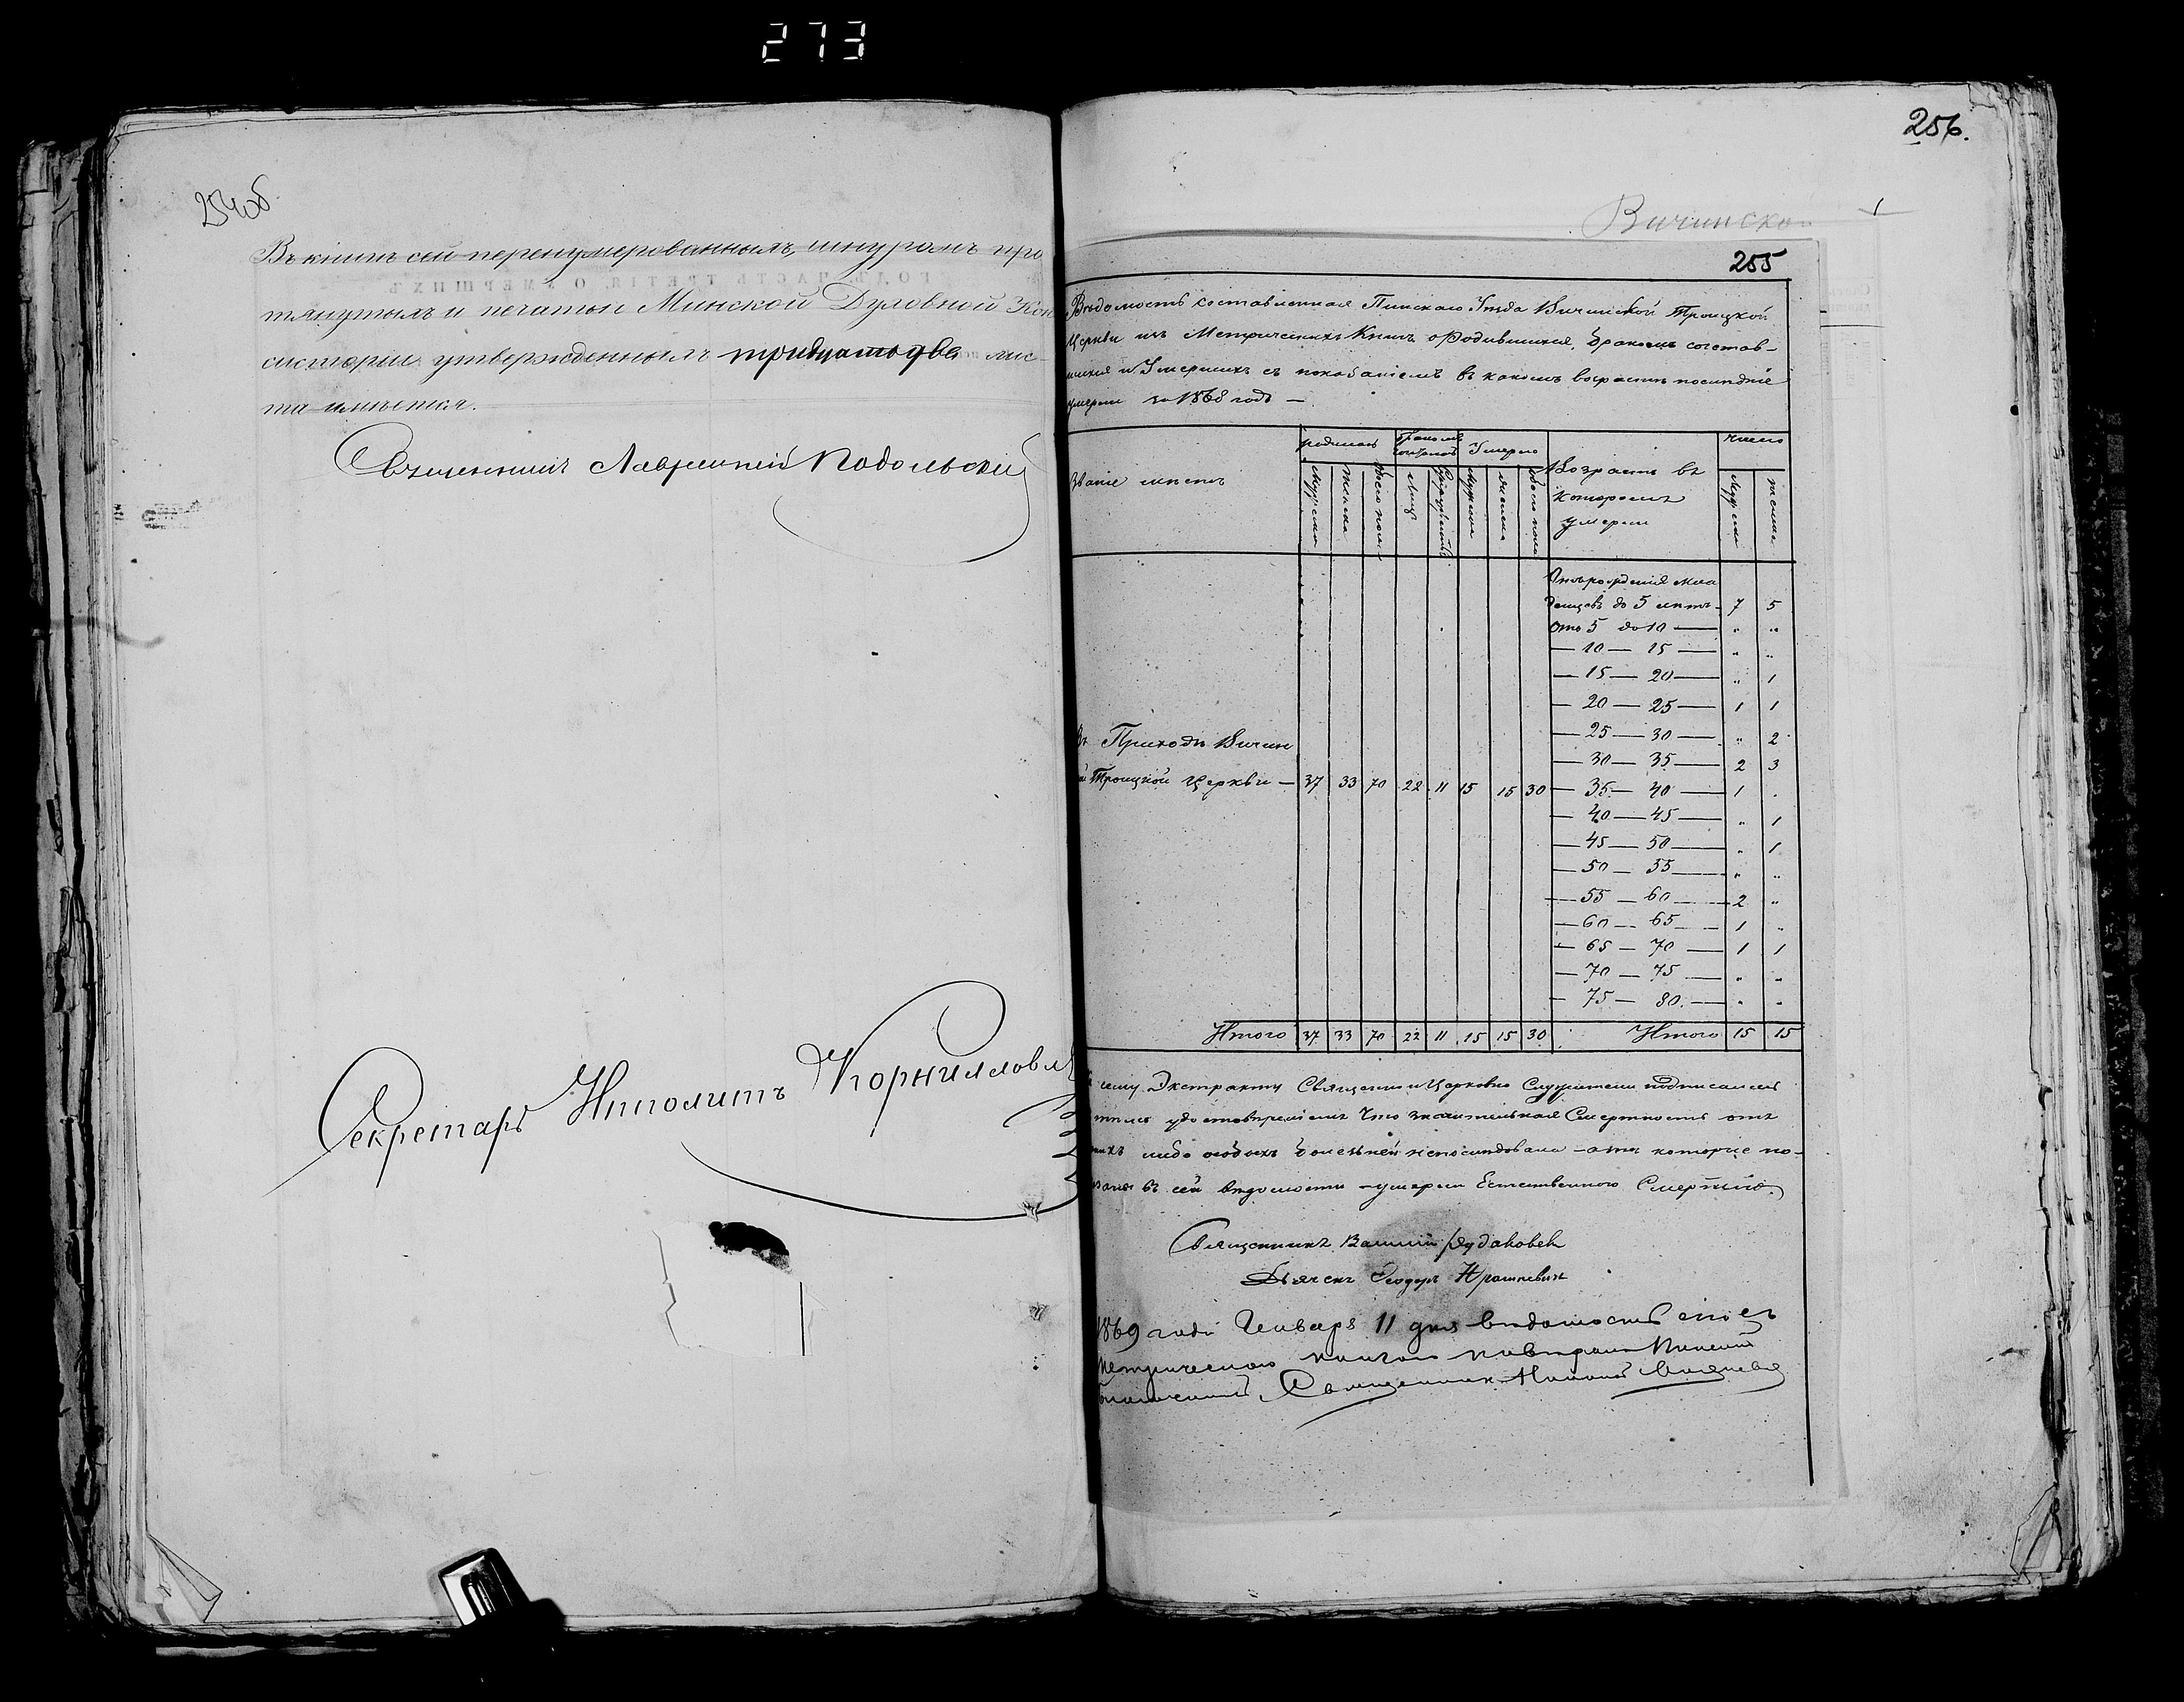 273
254об
Въ книгѣ сей перенумерованныхъ, шнуромъ про
тянутыхъ и печатью Минской Духовной Кон
систоріи утвержденныхъ тридцать два лис-
та имѣется.
Священникъ Лаврентій Подольскій
Секретарь Ипполитъ Корниллови
256.
Вичинской
1
255
Вѣдомость составленная Пинскаго Уѣзда Вичинской Троицкой
Церкви изъ Метрическихъ Книгъ о Родившихся, бракомъ сочетав-
шихся и Умершихъ съ показаніемъ въ какомъ возрастѣ послѣдніе
умерли за 1868 годъ —
Званіе мѣстъ
родилось
Бракомъ
Умерло
Возрастъ въ
которомъ
умерли
число
Мужеска
Женска
Обоего пола
Лицъ
Мужеска
Женска
Обоего пола
Мужеска
Женска
Отъ рожденія мла
денцевъ до 5 лѣтъ - 7 5
Отъ 5 до 10 — " "
— 10 — 15 — " "
— 15 — 20 — " 1
— 20 — 25 — 1 1
— 25 — 30 — " 2
— 30 — 35 — 2 3
— 35 — 40 — 1 .
— 40 — 45 — " 1
— 45 — 50 — " 1
— 50 — 55 — " "
— 55 — 60 — 2 "
— 60 — 65 — 1 "
— 65 — 70 — 1 1
— 70 — 75 — " "
— 75 — 80. — " "
Въ Приходѣ Вичин
й Троицкой Церкви — 37 33 70 22 11 15 15 30
Итого 37 33 70 22 11 15 15 30 Итого 15 15
сему Экстракту Священно и Церковно Служители подписомъ
удостовѣряемъ Что значительная Смертность отъ
либо особыхъ болезней непоследовала – а тѣ которые по-
въ сей вѣдомости – умерли Естественною Смертію.
Священникъ
Дьячекъ Феодоръ
1869 года Генваря 11 дня вѣдомость сію съ
Метрическою
Священникъ